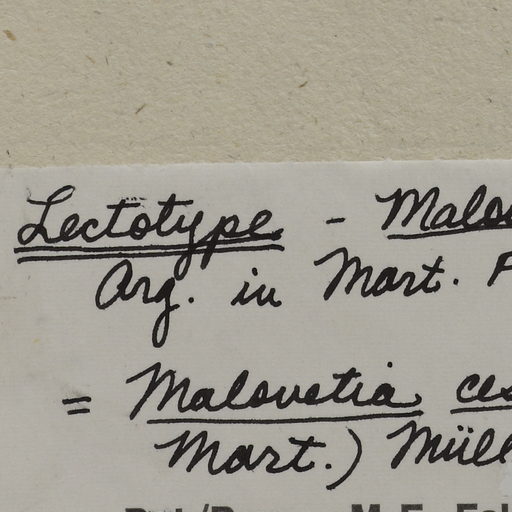 Lectotype - Malou
Arg. in Mart. F
= Malouetia ces
Mart.) Müll